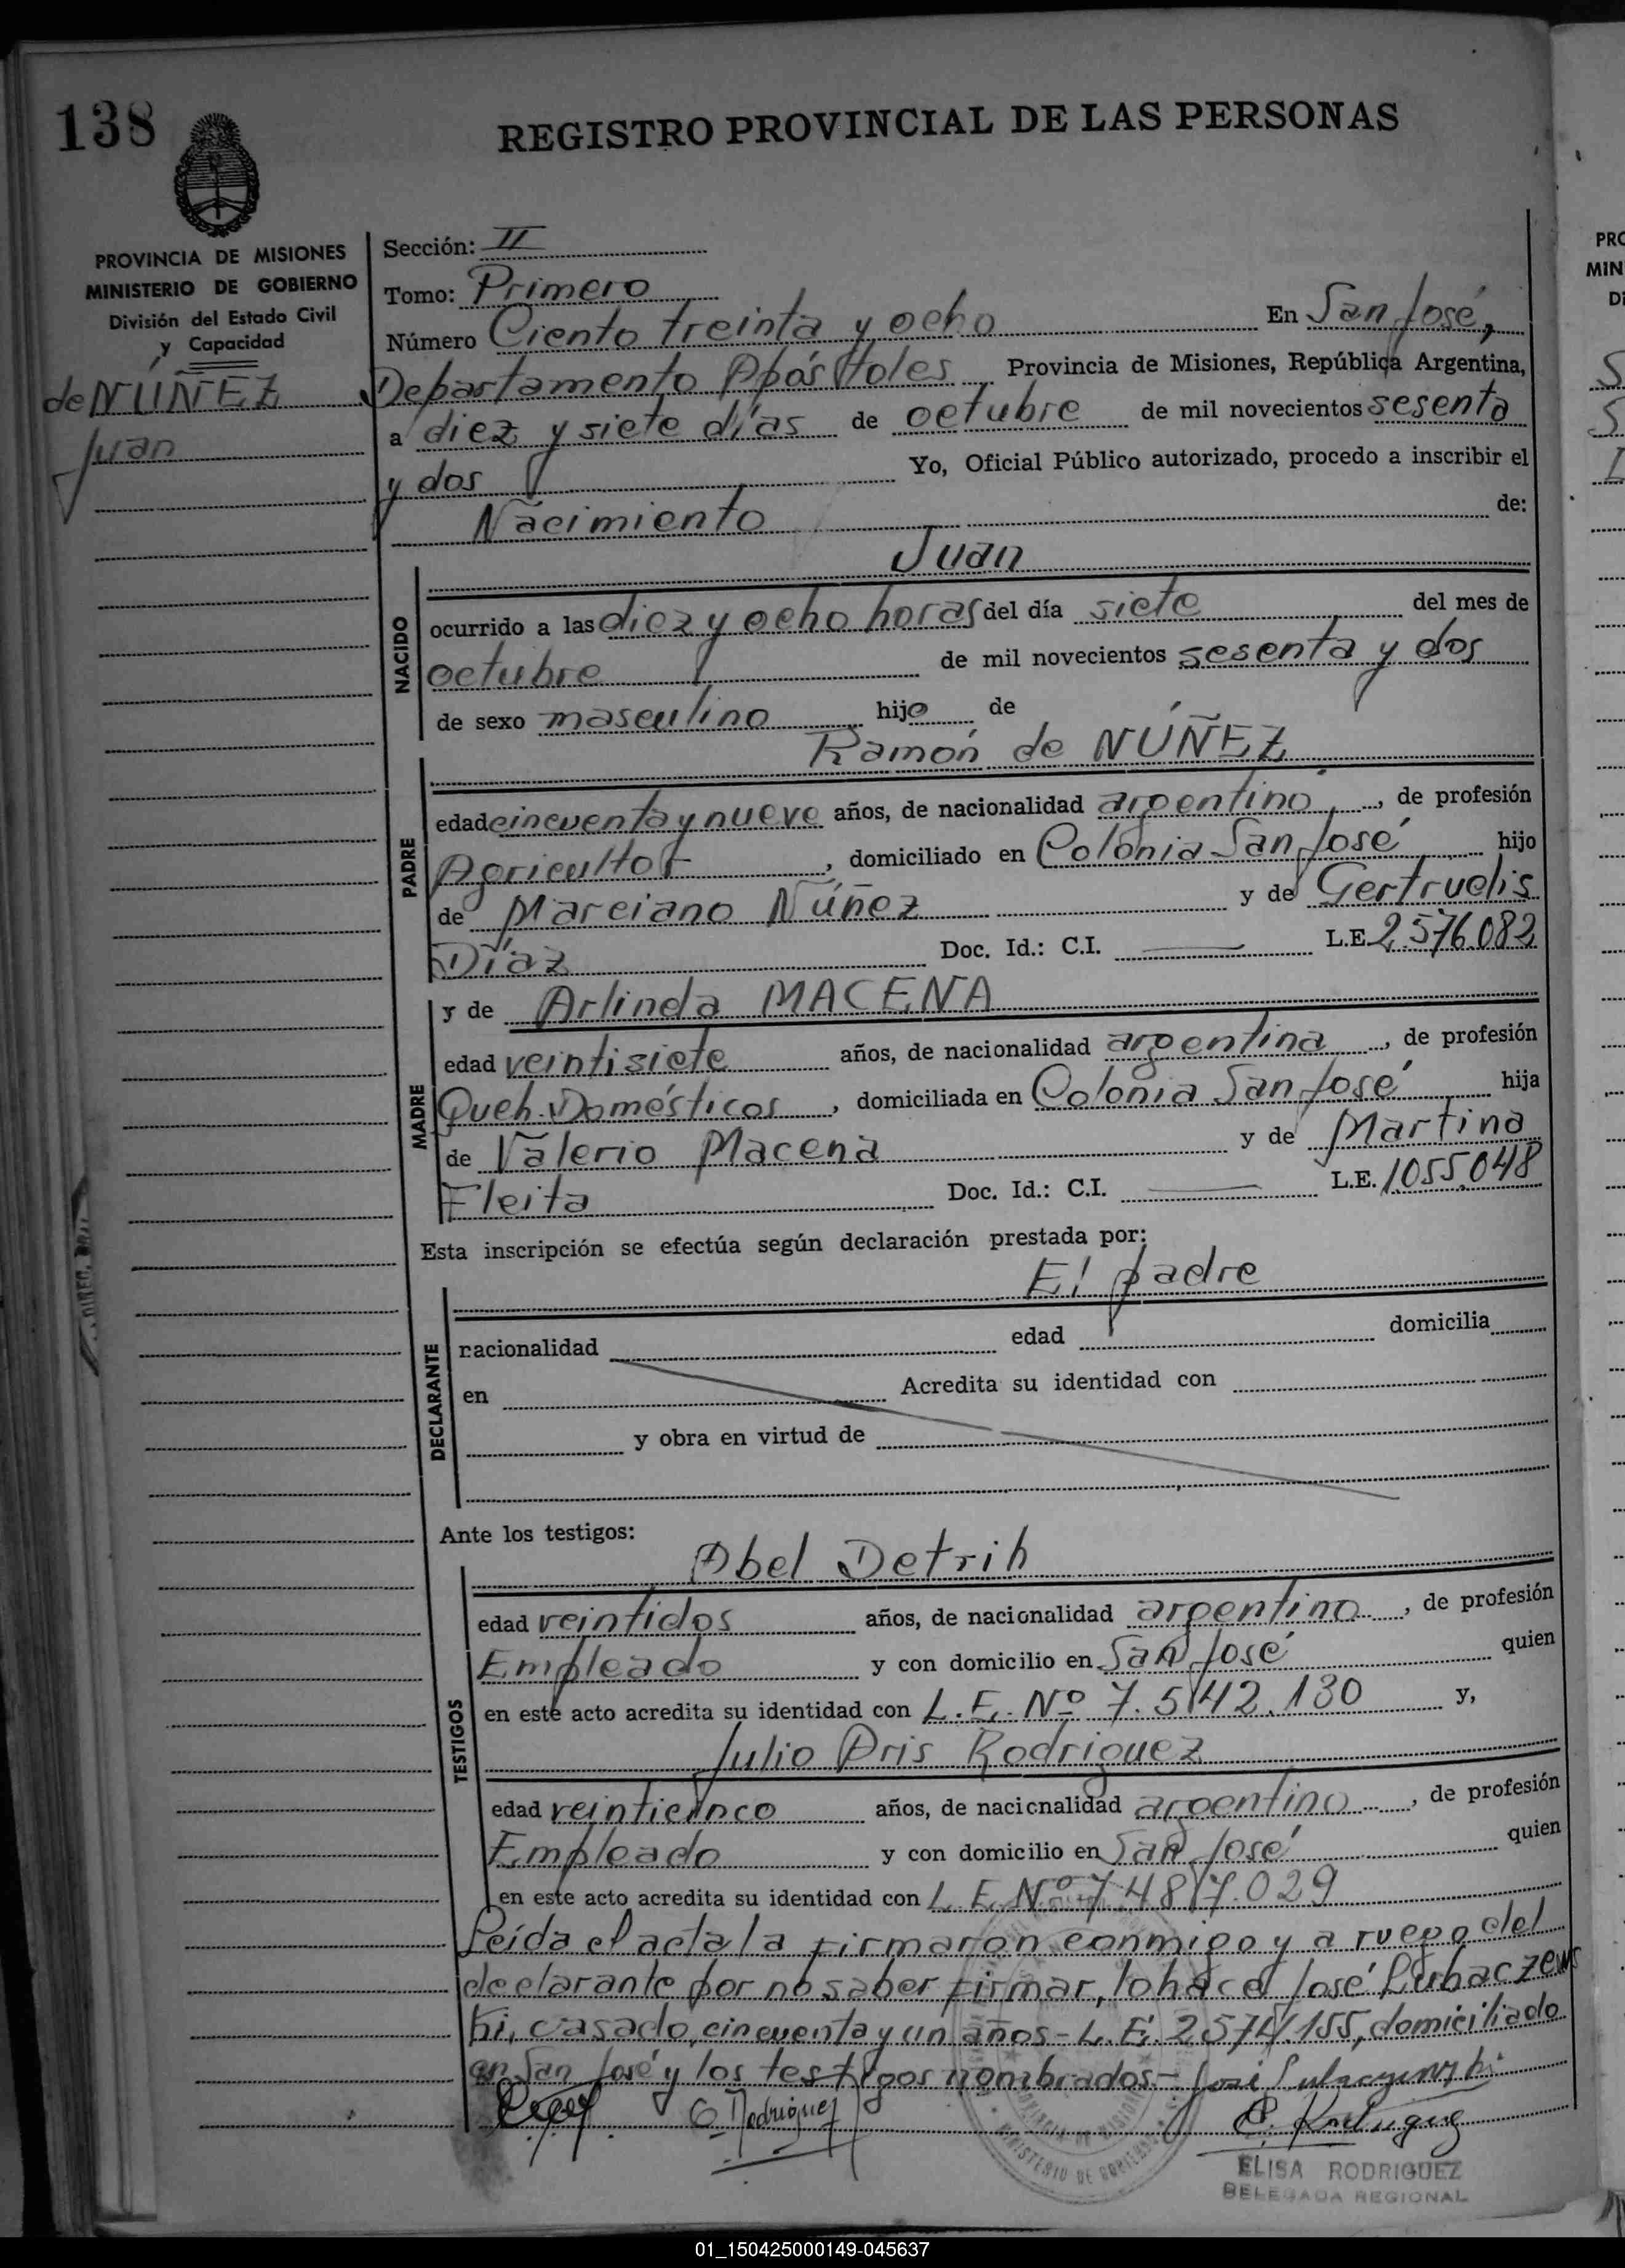 138
REGISTRO PROVINCIAL DE LAS PERSONAS
PROVINCIA DE MISIONES
MINISTERIO DE GOBIERNO
División del Estado Civil
y Capacidad
de NÚÑEZ
Juan
Sección: II
Tomo: Primero
Número Ciento treinta y ocho En San José,
Departamento Apóstoles Provincia de Misiones, República Argentina,
a diez y siete días de octubre de mil novecientos sesenta
y dos Yo, Oficial Público autorizado, procedo a inscribir el
Nacimiento de:
Juan
NACIDO
ocurrido a las diez y ocho horas del día siete del mes de
octubre de mil novecientos sesenta y dos
de sexo masculino hijo de
Ramón de NÚÑEZ
PADRE
edad cincuenta y nueve años, de nacionalidad argentino, de profesión
Agricultor, domiciliado en Colonia San José hijo
de Marciano Núñez y de Gertrudis
Díaz Doc. Id.: C.I. L.E. 2.576.082
y de Arlinda MACENA
MADRE
edad veintisiete años, de nacionalidad argentina, de profesión
Queh. Domésticos, domiciliada en Colonia San José hija
de Valerio Macena y de Martina
Fleita Doc. Id.: C.I. L.E. 1.055.048
Esta inscripción se efectúa según declaración prestada por:
El padre
DECLARANTE
nacionalidad edad domicilia
en Acredita su identidad con
y obra en virtud de
Ante los testigos:
Abel Detrih
TESTIGOS
edad veintidos años, de nacionalidad argentino, de profesión
Empleado y con domicilio en San José quien
en este acto acredita su identidad con L.E. Nº 7.542.130 y,
Julio Aris Rodriguez
edad veinticinco años, de nacionalidad argentino, de profesión
Empleado y con domicilio en San José quien
en este acto acredita su identidad con L.E. Nº 7.487.029
Leída el acta la firmaron conmigo y a ruego del
declarante por no saber firmar, lo hace José Lubaczews
ki, casado, cincuenta y un años - L.E. 2.574.155, domiciliado
en San José y los testigos nombrados.-
Rodriguez
E. Rodriguez
ELISA RODRIGUEZ
DELEGADA REGIONAL
MINISTERIO DE GOBIERNO
PROVINCIA DE MISIONES
PRO
MIN
Di
01_150425000149-045637